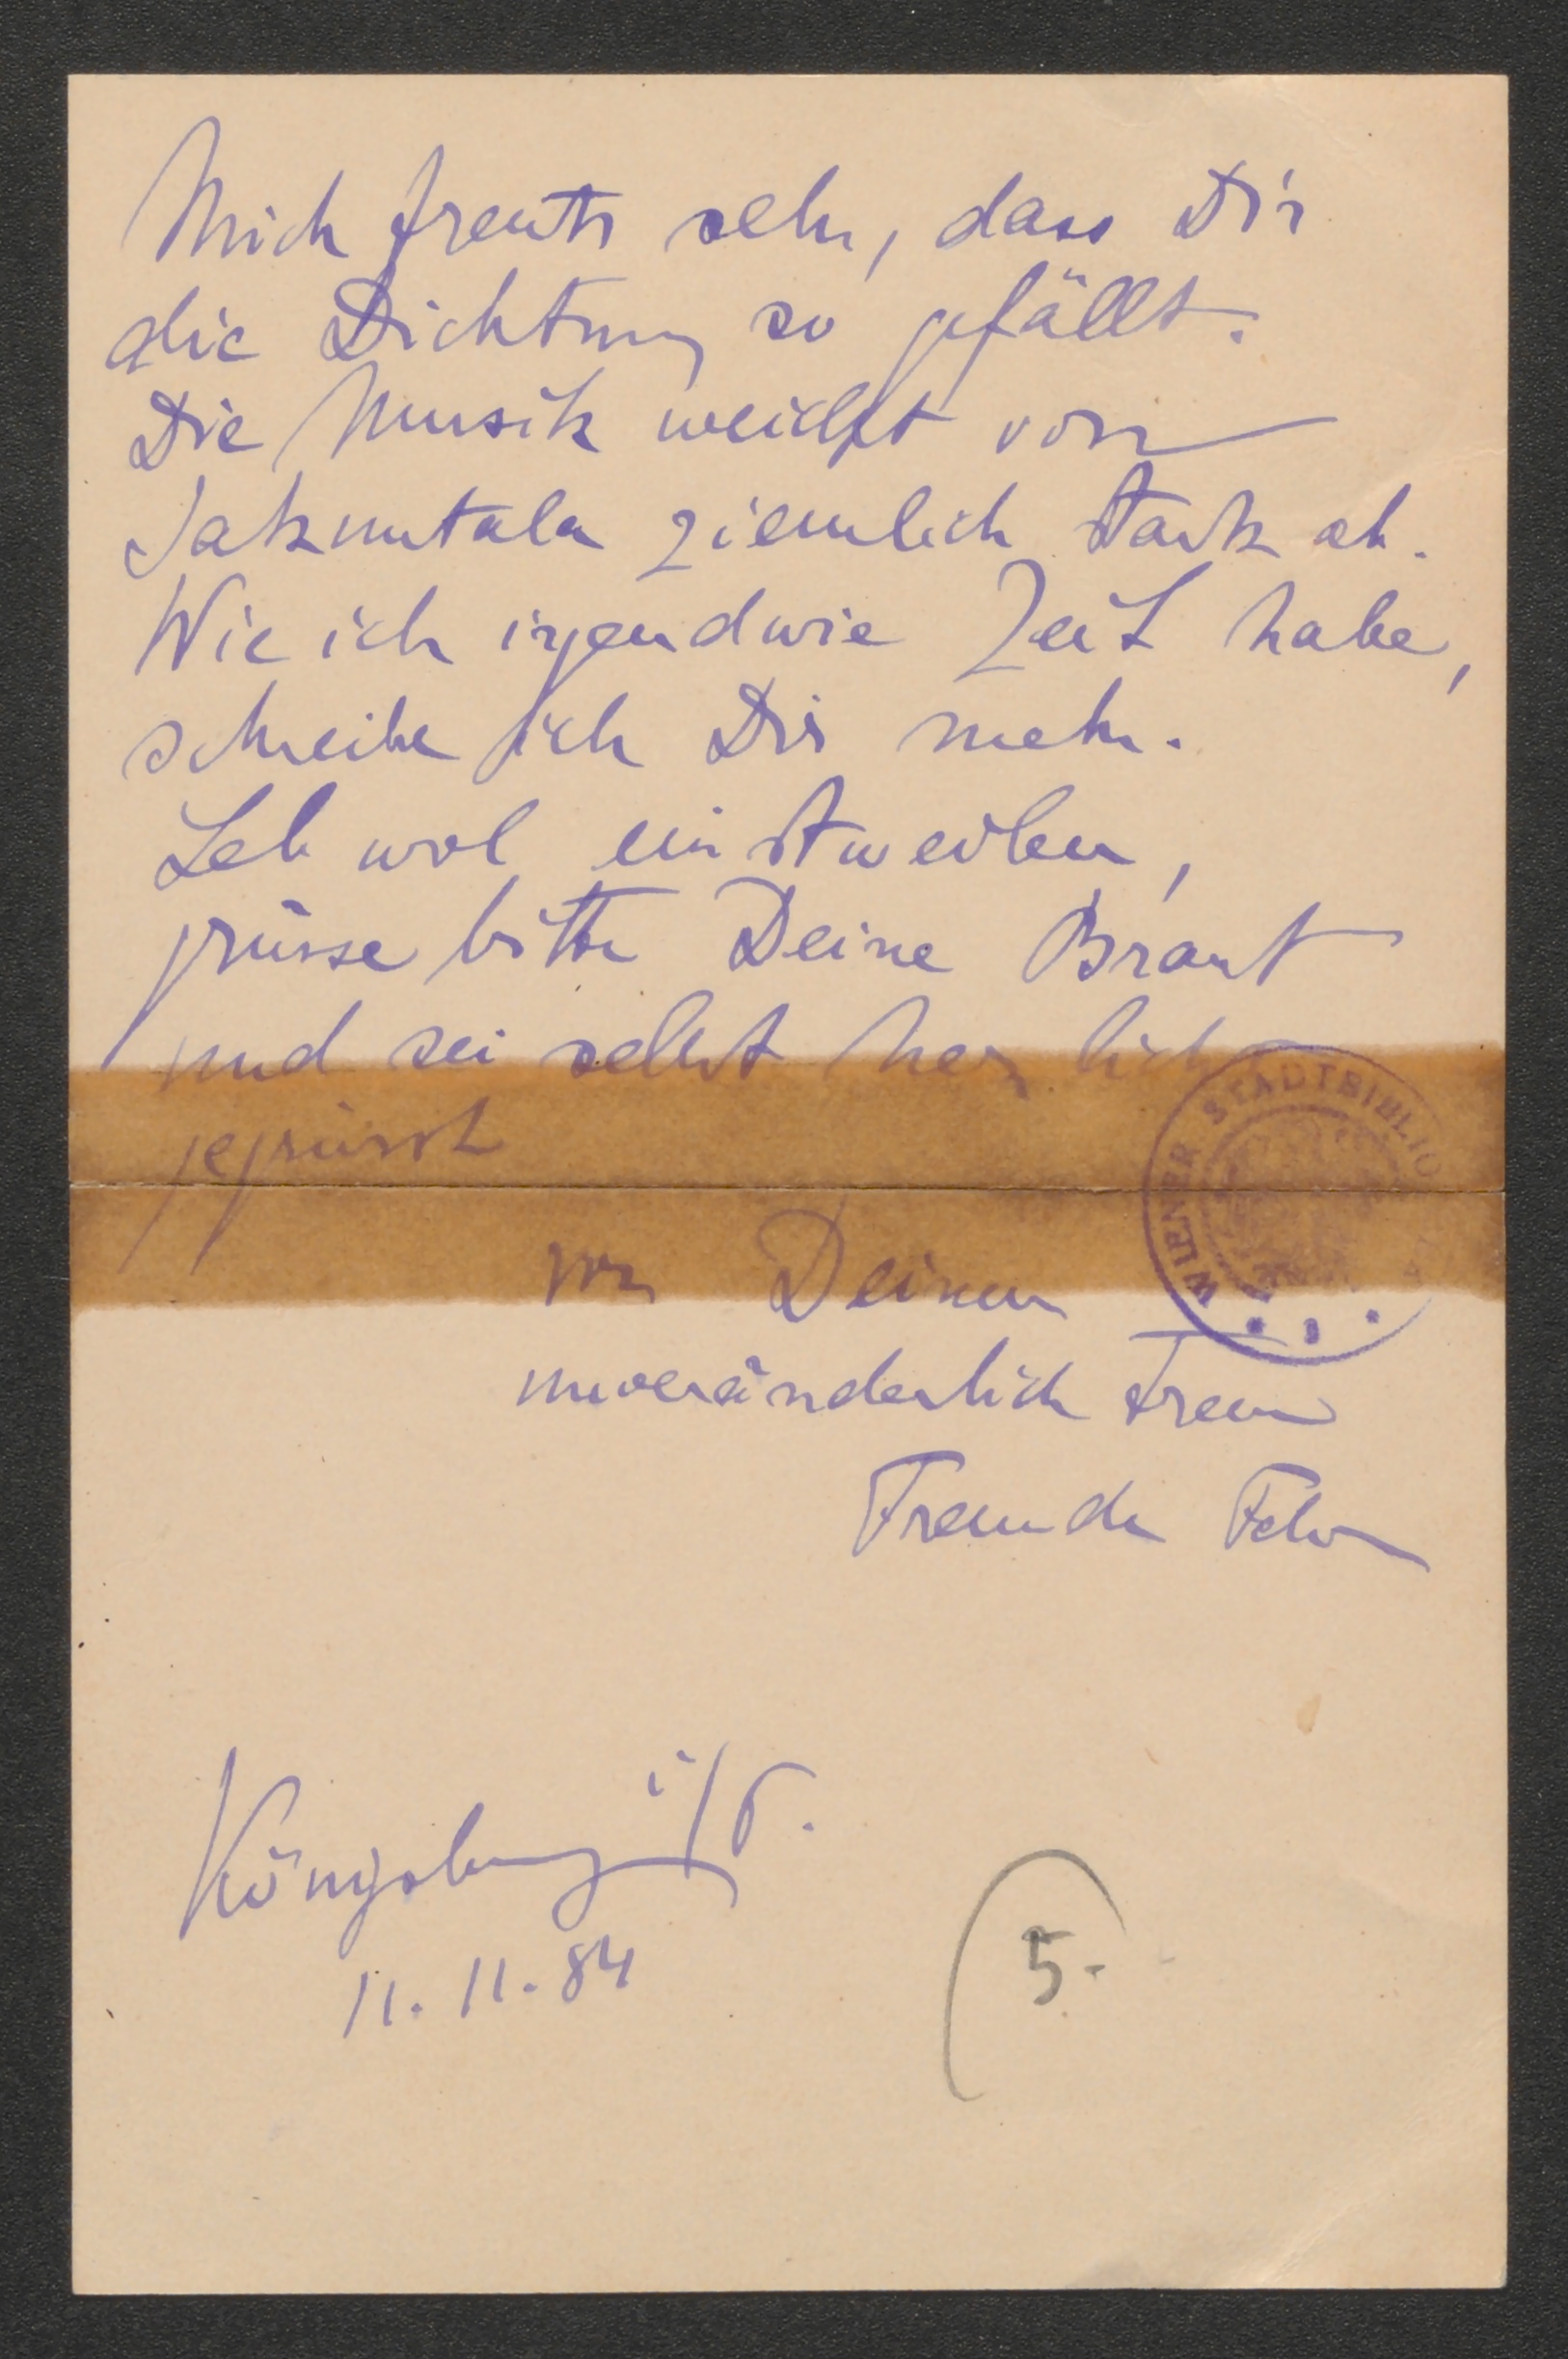 Mich freuts sehr, dass Dir
die Dichtung so gefällt.
Die Musik weicht von
Sakuntala ziemlich stark ab.
Wie ich irgendwie Zeit habe,
schreibe ich Dir mehr.
Leb wol einstweilen,
grüsse bitte Deine Braut
und sei selbst herzlich
gegrüsst
von Deinem
unveränderlich treuen
Freunde Felix
Königsberg i/P.
11. 11. 84
5.-
WIENER STADTBIBLIO